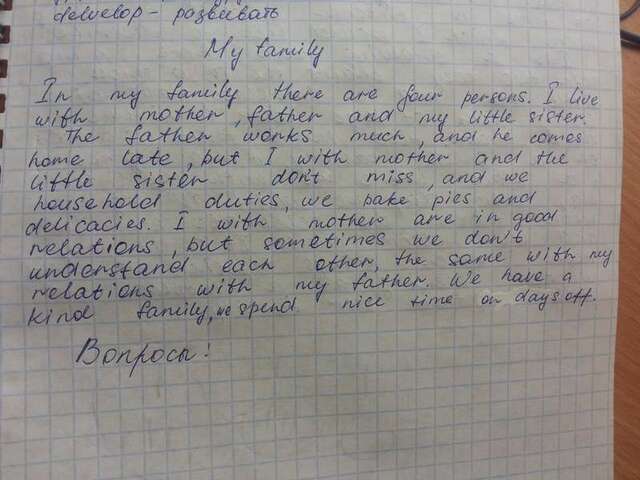 delvelop - развивать
My family
In my family there are four persons. I live
with mother, father and my little sister.
The father works much, and he comes
home late, but I with mother and the
little sister don't miss, and we
household duties, we bake pies and
delicacies. I with mother are in good
relations, but sometimes we don't
understand each other, the same with my
relations with my father. We have a
kind family, we spend nice time on days off.
Вопросы!